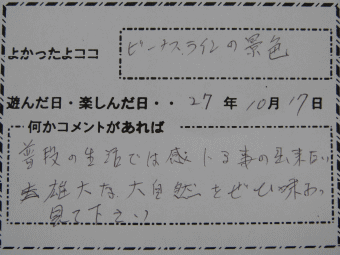 よかったよココ
ビーナスラインの景色
遊んだ日・楽しんだ日・・27年10月17日
何かコメントがあれば
普段の生活では感じる事の出来ない
雄大な大自然をぜひ味わっ
見て下さい